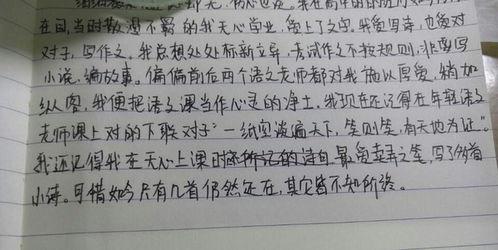 在
在同,当时散漫不羁的我无心学业,爱上了文字。我爱写诗,也爱对
对子,写作文,我总想处处标新立异,考试作文不按规则,非爱写
小说、编故事。偏偏前后两个语文老师都对我施以厚爱,稍加
纵容,我便把语文课当作心灵的净土。我现在还记得在年轻语文
老师课上对的下联对子“一纸空谈遍天下,笑则笑,有天地为证”。
我还记得我在无心上课时 最爱弄之笔,写了首
小诗。可惜如今只有几首仍然还在,其它皆不知所终。